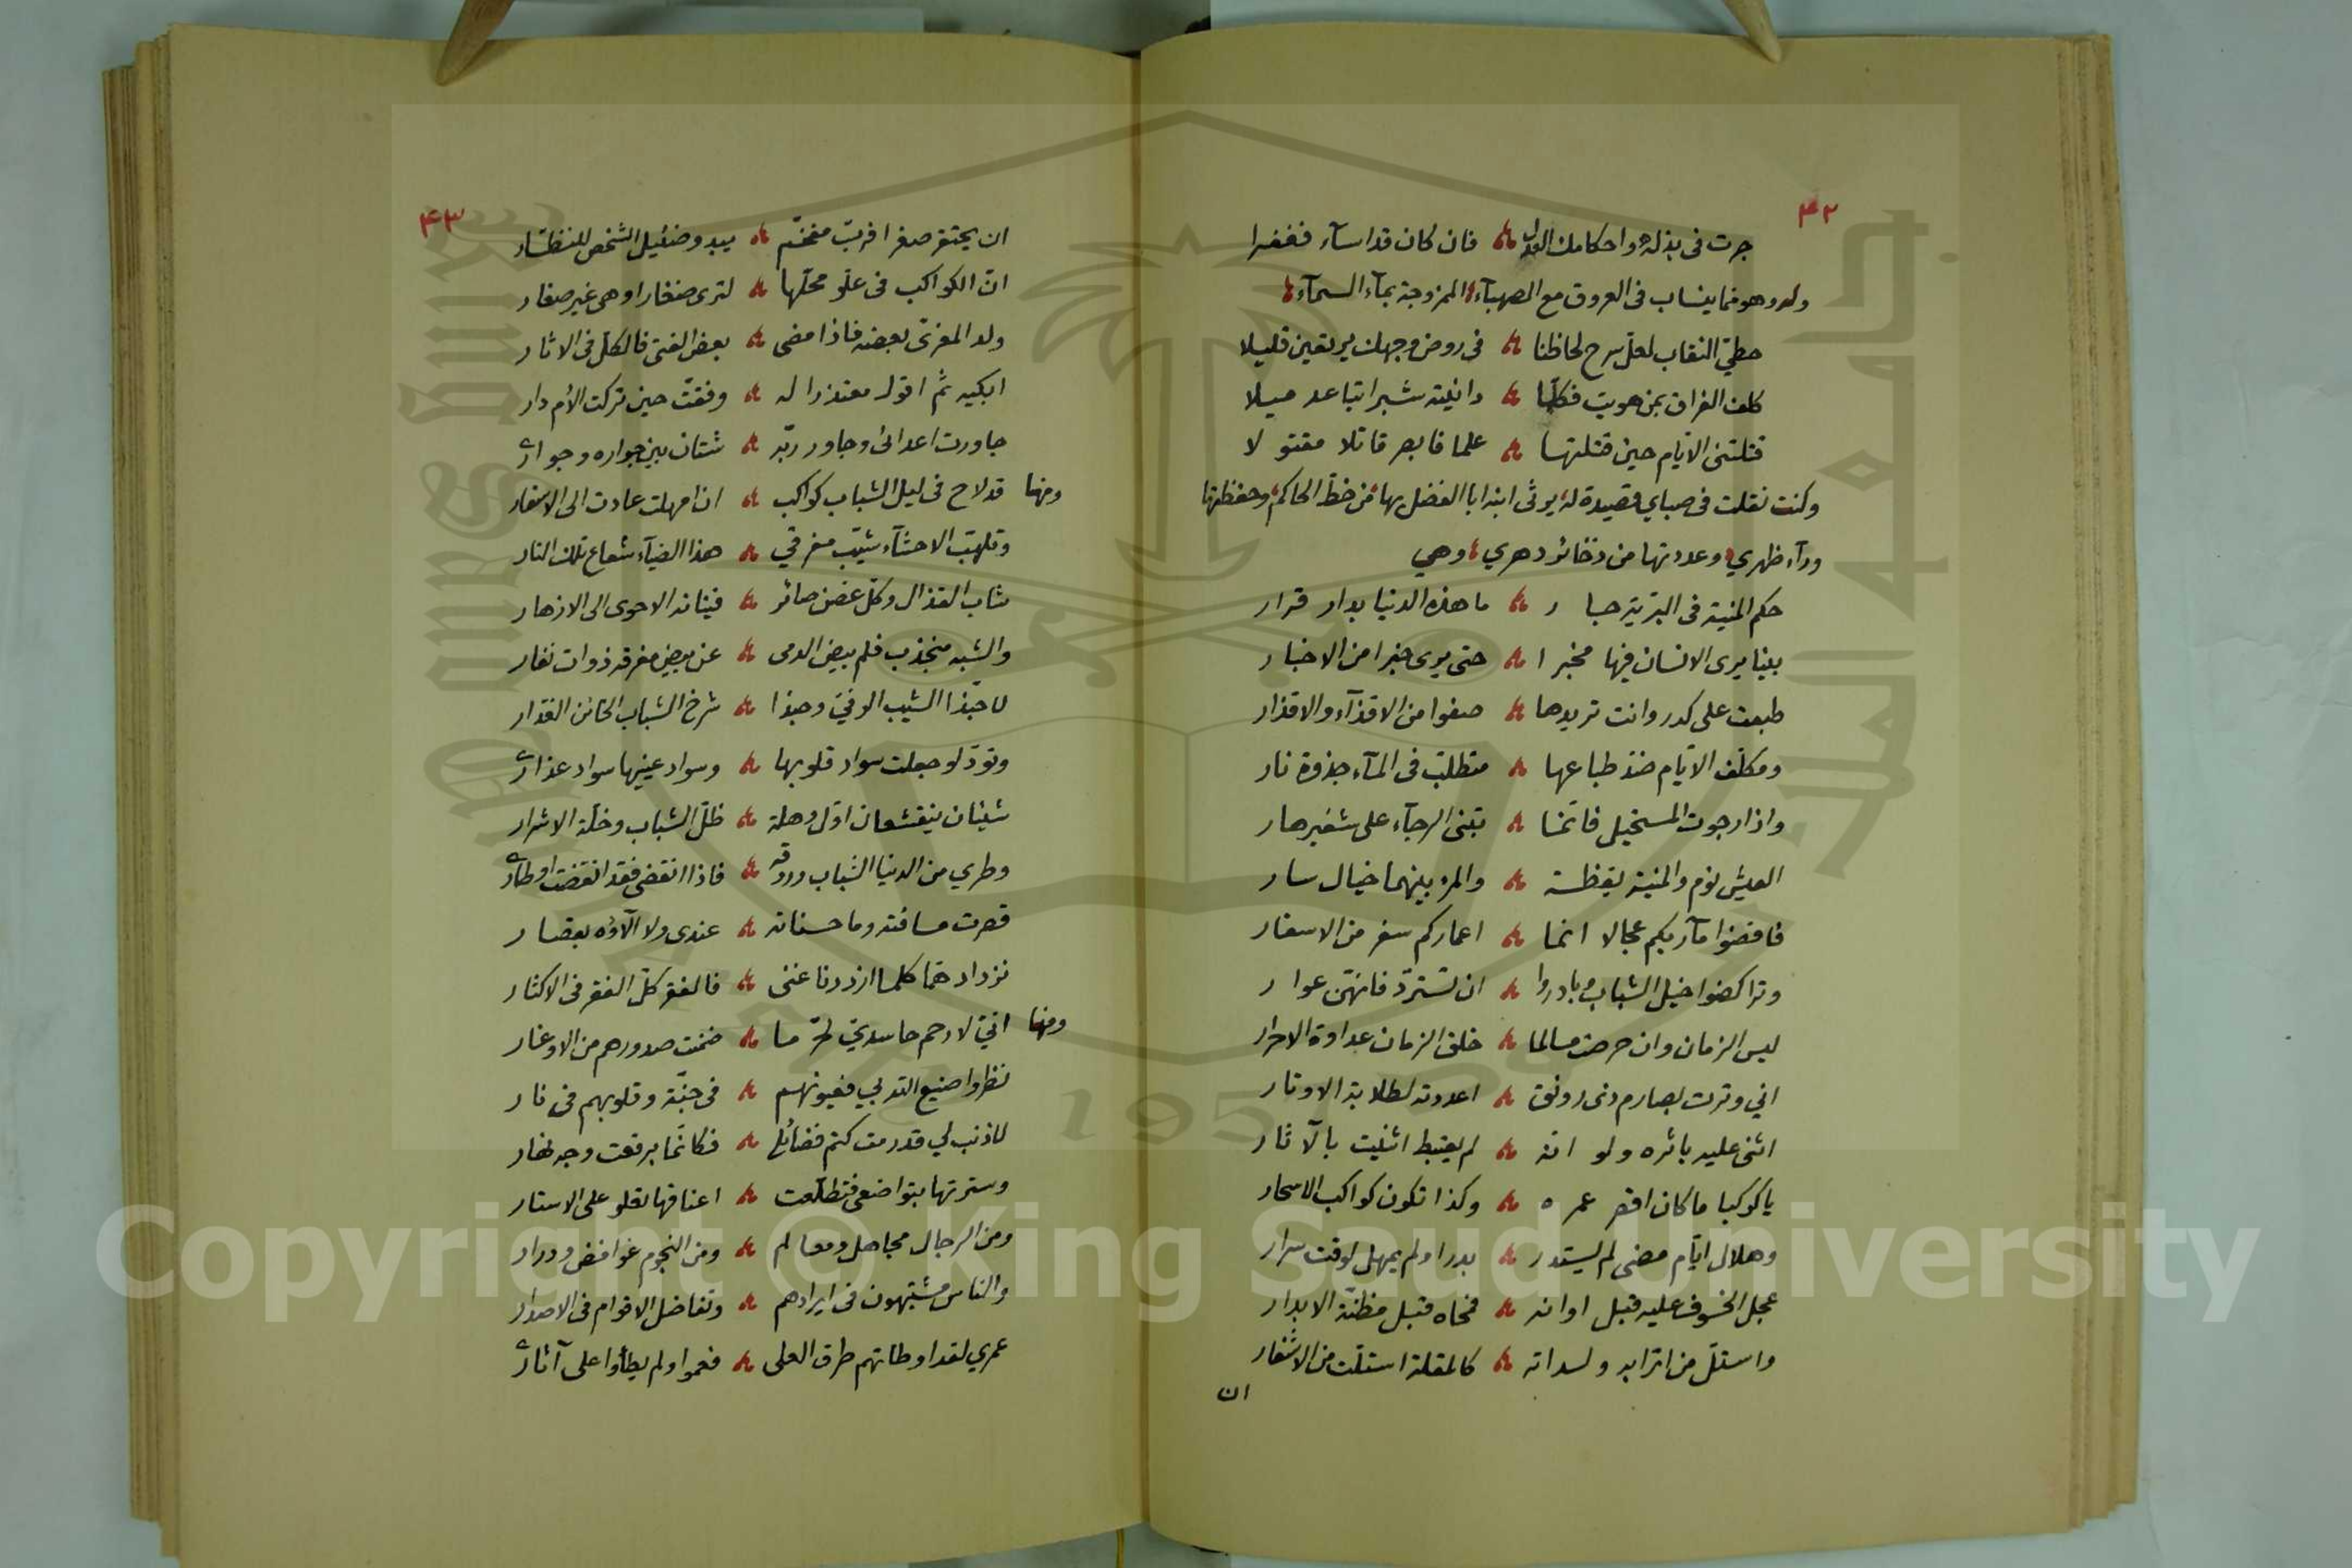 ٤٢
جرت في بذله واحكامك العدل ؞ فان كان قد اساء فغفرا
وله وهو مما ينساب في العروق مع الصهباء الممزوجة بماء السماء
حطي النقاب لعل سرح لحاظنا ؞ في روض وجهك يرتعين قليلا
كلف الفراق بمن هويت فكلما ؞ دانيته شبرا تباعد ميلا
قتلتني الايام حين قتلتها ؞ علما فابصر قاتلا مقتولا
وكنت نقلت في صباي قصيدة له يرثي ابنه ابا الفضل بها من خط الحاكم وحفظتها
ورآء ظهري وعددتها من ذخائر دهري وهي
حكم المنية في البرية جار ؞ ما هذه الدنيا بدار قرار
بينا يرى الانسان فيها مخبرا ؞ حتى يرى خبرا من الاخبار
طبعت على كدر وانت تريدها ؞ صفوا من الاقذآء والاقذار
ومكلف الايام ضد طباعها ؞ متطلب في المآء جذوة نار
واذا رجوت المستحيل فانما ؞ تبنى الرجآء على شفير هار
العيش نوم والمنية يقظة ؞ والمرء بينهما خيال سار
فاقضوا مآربكم عجالا انما ؞ اعماركم سفر من الاسفار
وتراكضوا خيل الشباب وبادروا ؞ ان تسترد فانهن عوار
ليس الزمان وان حرصت مسالما ؞ خلق الزمان عداوة الاحرار
اني وترت بصارم ذي رونق ؞ اعددته لطلابة الاوتار
اثني عليه باثره ولو انه ؞ لم يغتبط اثنيت بالآثار
يا كوكبا ما كان اقصر عمره ؞ وكذا تكون كواكب الاسحار
وهلال ايام مضى لم يستدر ؞ بدرا ولم يمهل لوقت سرار
عجل الخسوف عليه قبل اوانه ؞ فمحاه قبل مظنة الابدار
واستل من اترابه ولداته ؞ كالمقلة استلت من الاشفار
ان
٤٣
ان يحتقر صغرا فرب مفخم ؞ يبدو ضئيل الشخص للنظار
ان الكواكب في علو محلها ؞ لترى صغارا وهي غير صغار
ولد المعزى بعضه فاذا مضى ؞ بعض الفتى فالكل في الاثار
ابكيه ثم اقول معتذرا له ؞ وفقت حين تركت الأم دار
جاورت اعدائي وجاور ربه ؞ شتان بين جواره وجواري
ومنها قد لاح في ليل الشباب كواكب ؞ ان امهلت عادت الى الاسفار
وتلهب الاحشآء شيب مفرقي ؞ هذا الضيآء شعاع تلك النار
شاب القذال وكل غصن صائر ؞ فينانه الاحوى الى الازهار
والشبه منجذب فلم بيض الدمى ؞ عن بيض مفرقه ذوات نفار
لا حبذا الشيب الوفي وحبذا ؞ شرخ الشباب الخائن الغدار
وتود لو جعلت سواد قلوبها ؞ وسواد عينيها سواد عذاري
شيئان ينقشعان اول وهلة ؞ ظل الشباب وخلة الاشرار
وطري من الدنيا الشباب وروقه ؞ فاذا انقضى فقد انقضت اوطاري
قصرت مسافته وما حسناته ؞ عندي ولا آلاؤه بقصار
نزداد هما كلما ازددنا غنى ؞ فالفقر كل الفقر في الاكثار
ومنها اني لارحم حاسدي لحر ما ؞ ضمت صدورهم من الاوغار
نظروا صنيع الله بي فعيونهم ؞ في جنة وقلوبهم في نار
لا ذنب لي قد رمت كتم فضائلي ؞ فكانما برقعت وجه نهار
وسترتها بتواضعي فتطلعت ؞ اعناقها تعلو على الاستار
ومن الرجال مجاهل ومعالم ؞ ومن النجوم غوامض ودرار
والناس مشتبهون في ايرادهم ؞ وتفاضل الاقوام في الاصدار
عمري لقد اوطاتهم طرق العلى ؞ فعموا ولم يطأوا على آثاري
Copyright © King Saud University
1957